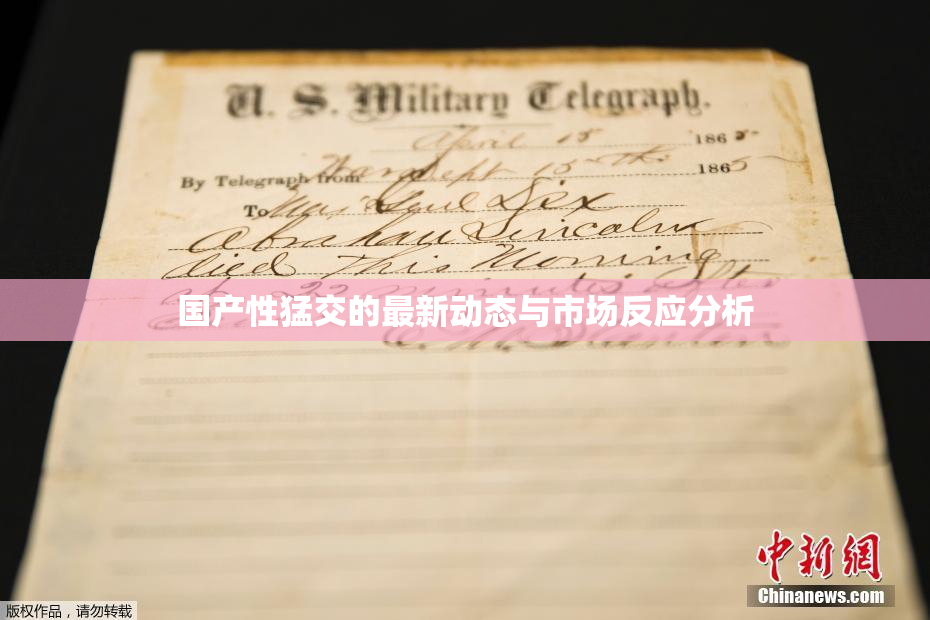 U. S. Military Telegraph.
April 15 1865
By Telegraph from War Dept 15th 1865
To Maj Genl Dix
Abraham Lincoln
died This Morning
at 22 minutes after
国产性猛交的最新动态与市场反应分析
E. M. Stanton
中新网
Chinanews.com
版权作品，请勿转载